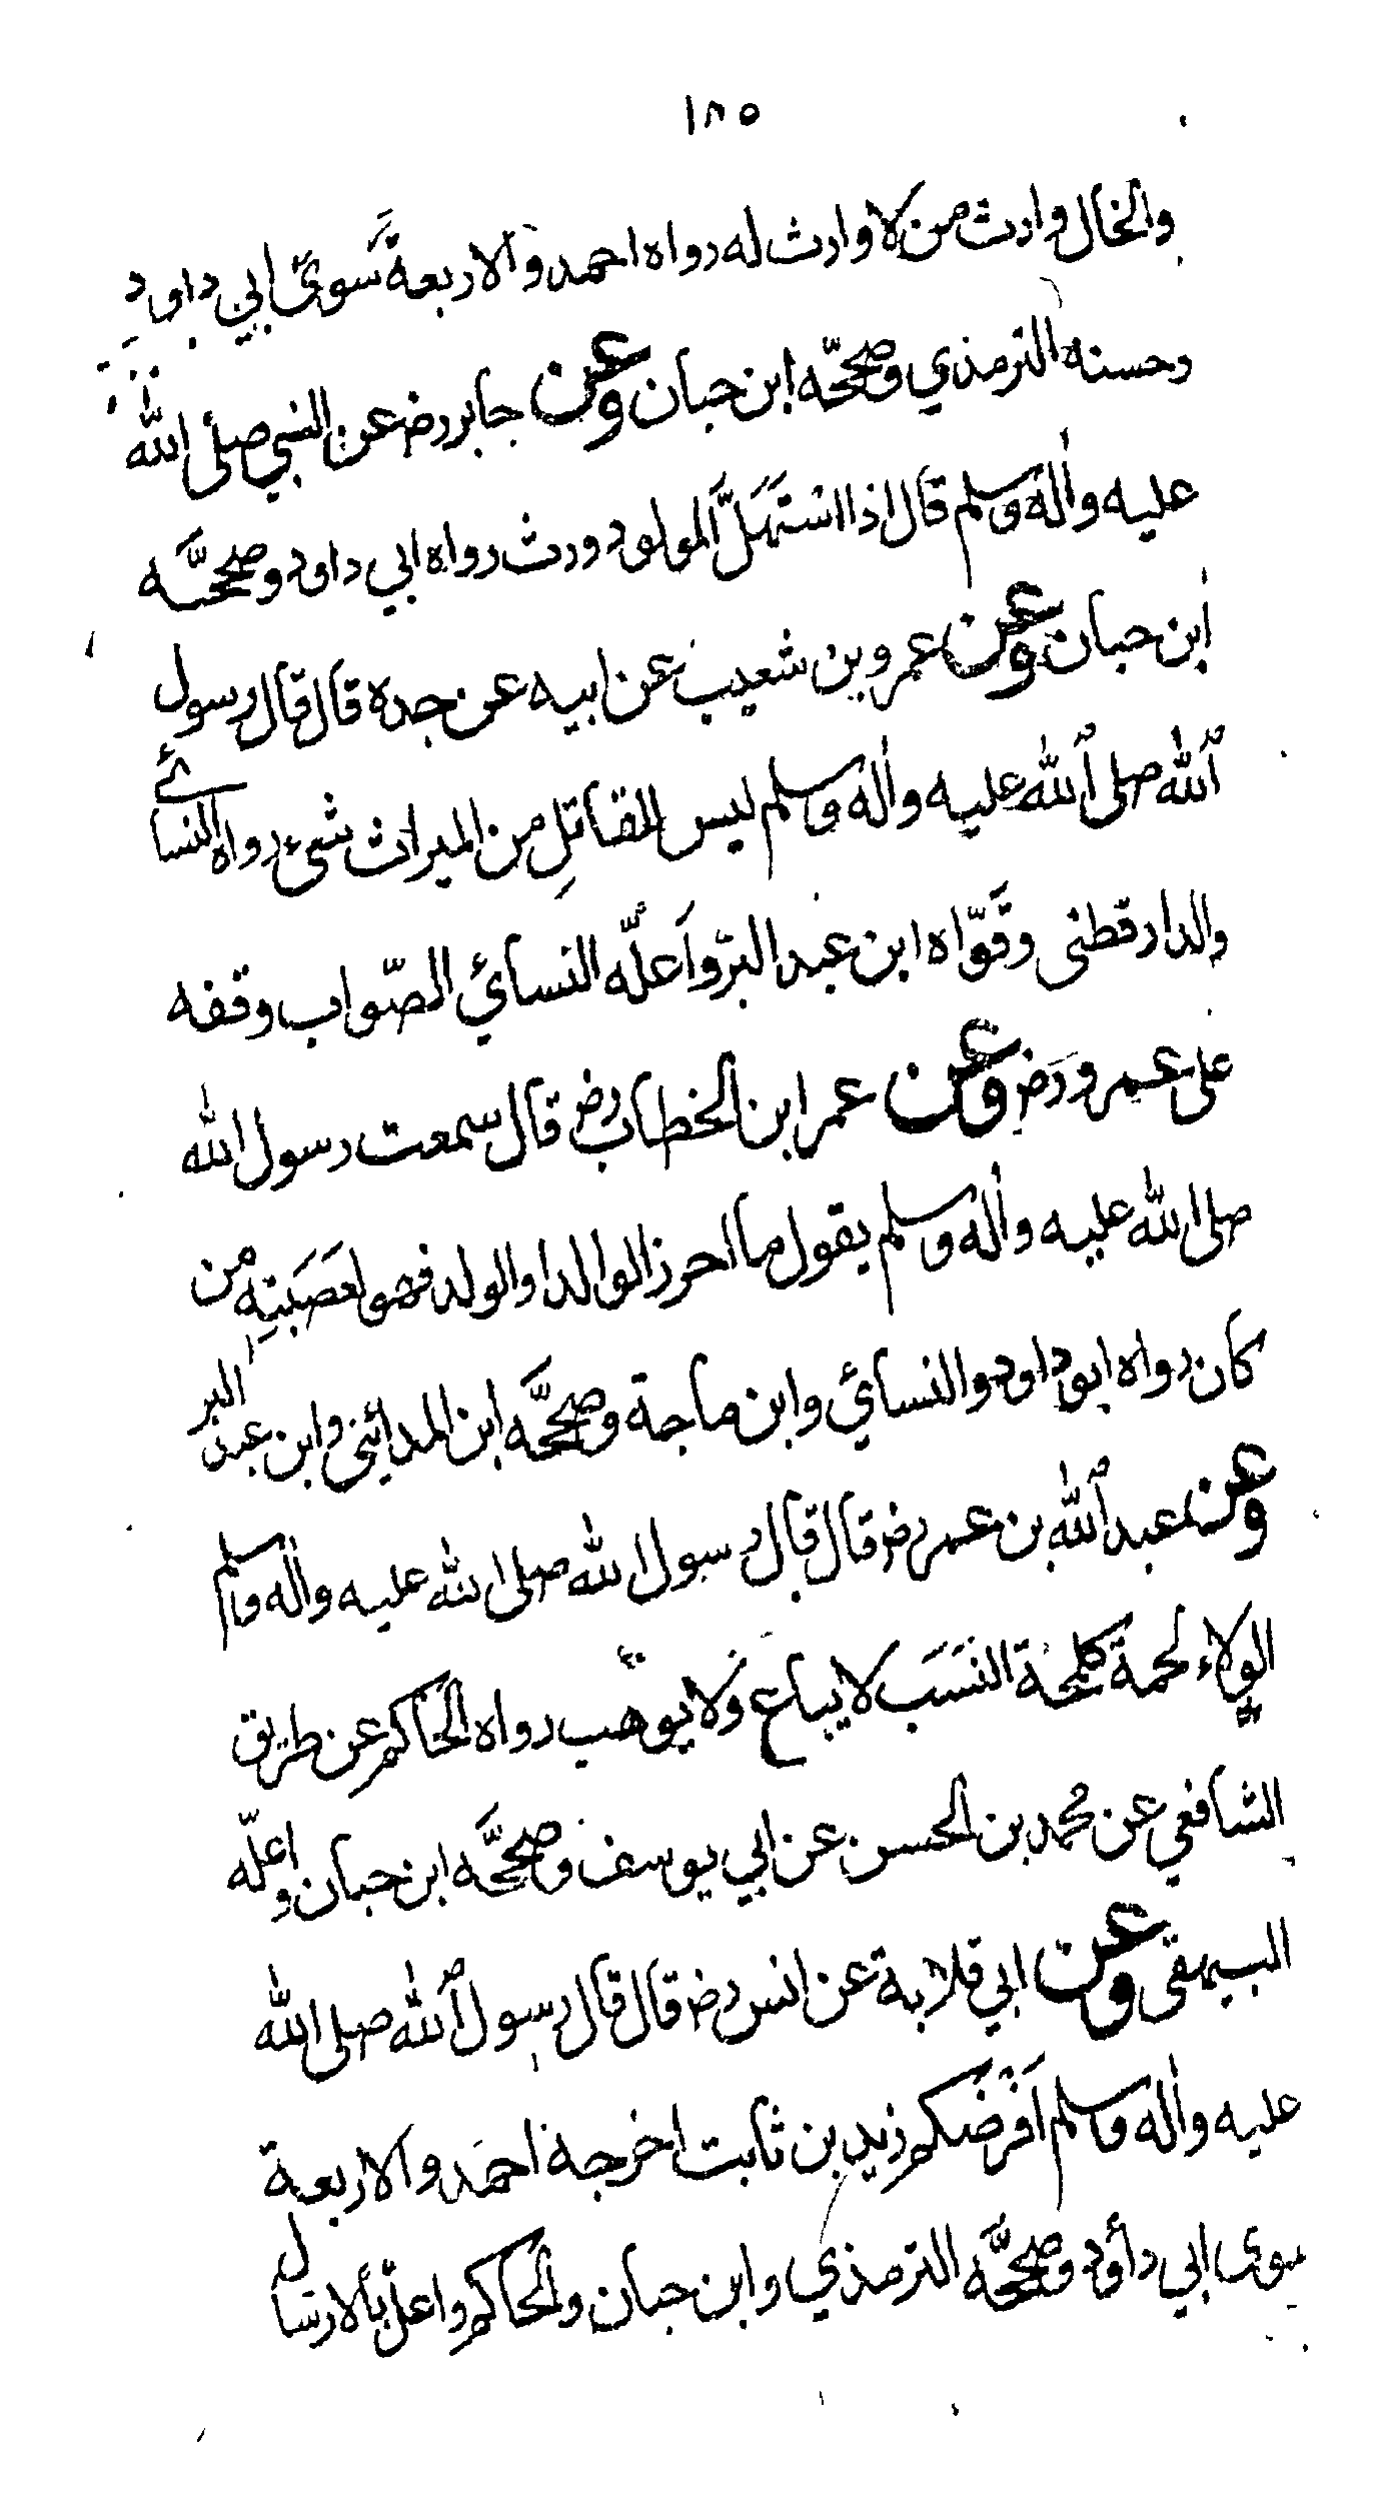 ١٨٥
والخال وارث من لا وارث له رواه احمد والاربعة سوى ابي داود
وحسنه الترمذي وصححّه ابن حبان وعن جابر رض عن النبي صلى الله
عليه واله وسلم قال اذا استَهَلَّ المولود ورث رواه ابي داود وصححَّه
ابن حبان وعن عمرو بن شعيب عن ابيه عن جده قال قال رسول
الله صلى الله عليه واله وسلم ليس للقاتلِ من الميراث شيء رواه النسائي
والدارقطنى وقَوّاه ابن عبد البرّ واَعلَّه النسائي الصّواب وقفه
على عمرو رَض وعن عمر ابن الخطاب رض قال سمعت رسول الله
صلى الله عليه واله وسلم يقول ما احرز الوالد او الولد فهو لعَصَبَتِهِ من
كان رواه ابو داود والنسائي وابن ماجة وصححَّه ابن المدائنى وابن عبد البر
وعن عبد الله بن عمر رض قال قال رسول الله صلى الله عليه واله وسلم
الولاء لحمة كلحمة النَسَب لا يباع وَلا يوهَب رواه الحاكم عن طريق
الشافعي عن محمد بن الحسن عن ابي يوسف وصححَّه ابن حبان واعلّه
البيهقى وعن ابي قلابة عن انس رض قال قال رسول الله صلى الله
عليه واله وسلم اَفرَضكم زيد بن ثابت اخرجة احمَد والاربعة
سوى ابي داود وصححَّه الترمذي وابن حبان والحاكم واعلّ بالارسال